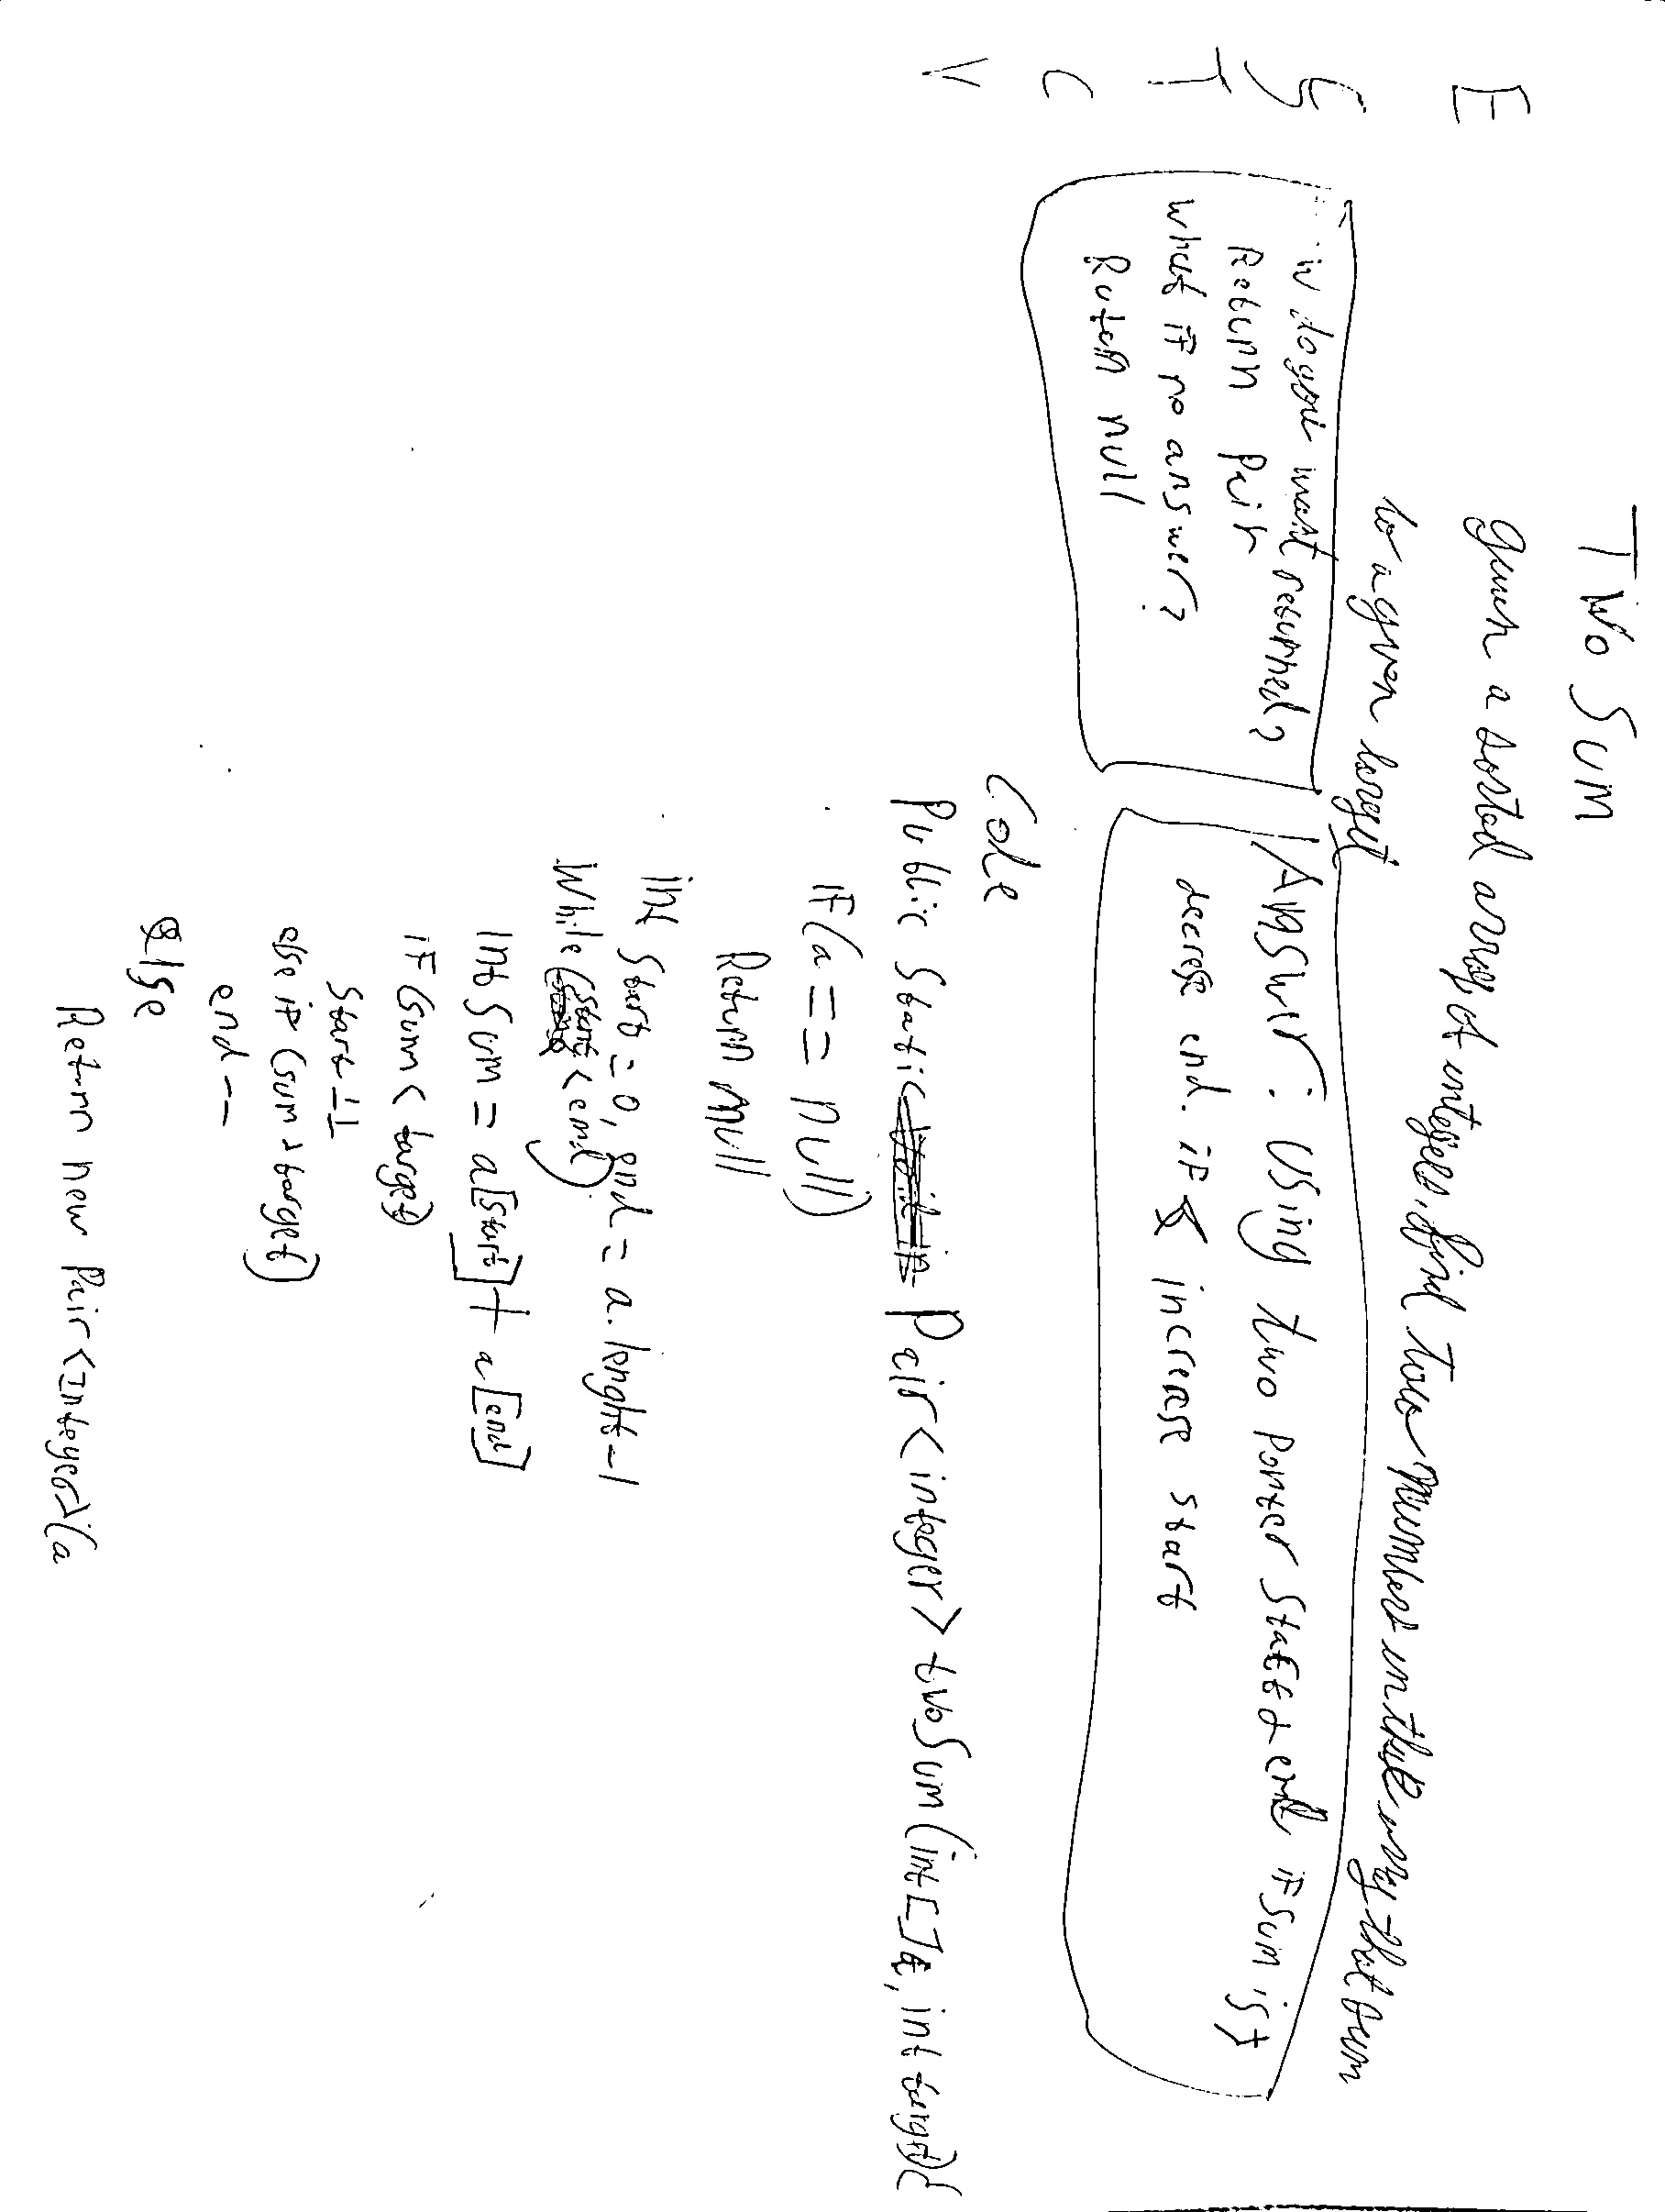 Two Sum
E
given a sorted array of integers, find two numbers in the array that sum
to a given target
S
T
C
V
do you want returned?
Return Pair
what if no answer?
Return null
Answer: Using two ponter start & end if sum is >
decrese end. if < increase start
Code
Public Static Pair<integer> twoSum(int[]a, int target){
if(a == null)
Return null
int Start = 0, end = a.lenght-1
While(start < end)
int Sum = a[start] + a[end]
if (sum < target)
Start ++
else if (sum > target)
end --
else
Return new Pair<Integer>(a